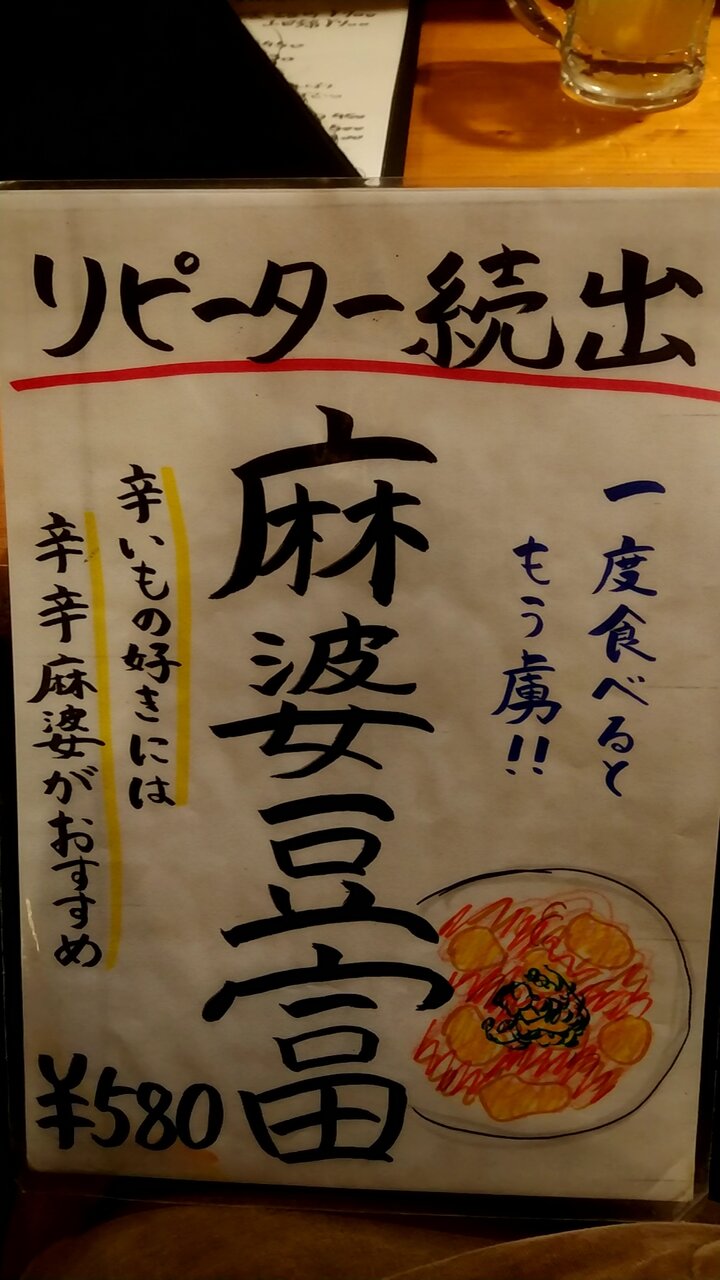 リピーター続出
一度食べると
もう虜!!
麻婆豆富
辛いもの好きには
辛辛麻婆がおすすめ
¥580